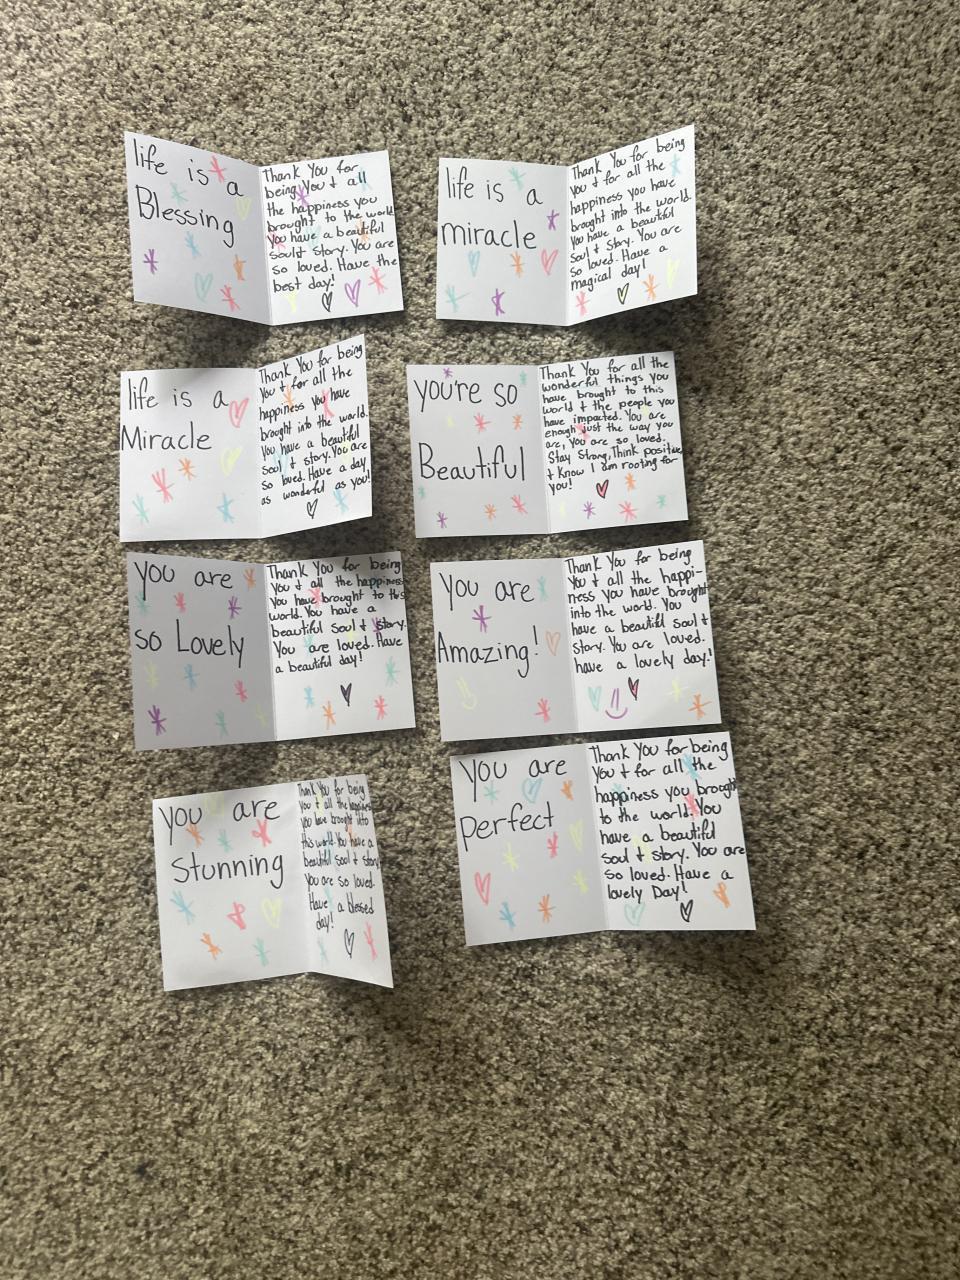 life is a
Blessing
Thank You for
being You & all
the happiness you
brought to the world.
You have a beautiful
soul & story. You are
so loved. Have the
best day!
life is a
miracle
Thank You for being
You & for all the
happiness you have
brought into the world.
You have a beautiful
Soul & Story. You are
so loved. Have a
magical day!
life is a
Miracle
Thank You for being
You & for all the
happiness you have
brought into the world.
You have a beautiful
Soul & story. You are
so loved. Have a day
as wonderful as you!
you're so
Beautiful
Thank You for all the
wonderful things you
have brought to this
world & the people you
have impacted. You are
enough just the way you
are, You are so loved.
Stay Strong, Think positive
& Know I am rooting for
you!
you are
so Lovely
Thank You for being
You & all the happiness
You have brought to this
world. You have a
beautiful soul & story.
You are loved. Have
a beautiful day!
you are
Amazing!
Thank You for being
You & all the happi-
ness You have brought
into the world. You
have a beautiful soul &
story. You are loved.
have a lovely day!
you are
Stunning
Thank You for being
You & all the happiness
You have brought into
this world. You have a
beautiful soul & story
You are so loved.
Have a blessed
day!
you are
perfect
Thank You for being
You & for all the
happiness you brought
to the world. You
have a beautiful
soul & story. You are
so loved. Have a
lovely Day!